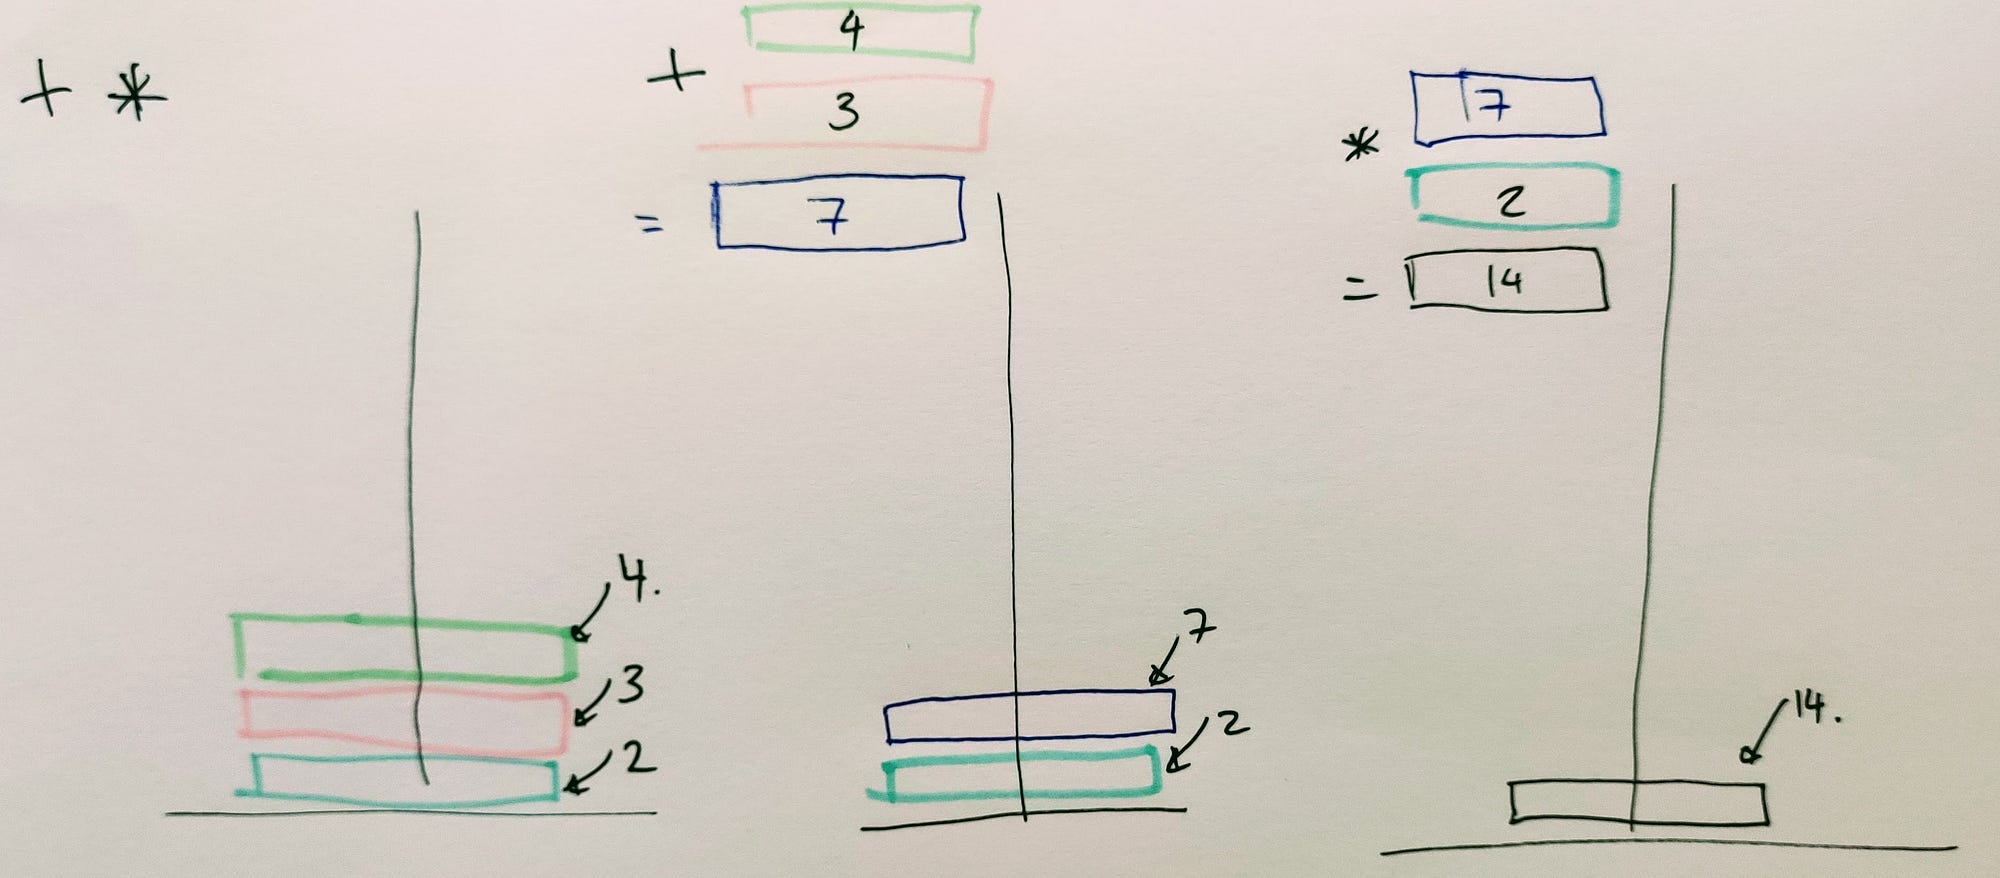 + *
+ 4
3
= 7
4.
3
2
7
2
* 7
2
= 14
14.